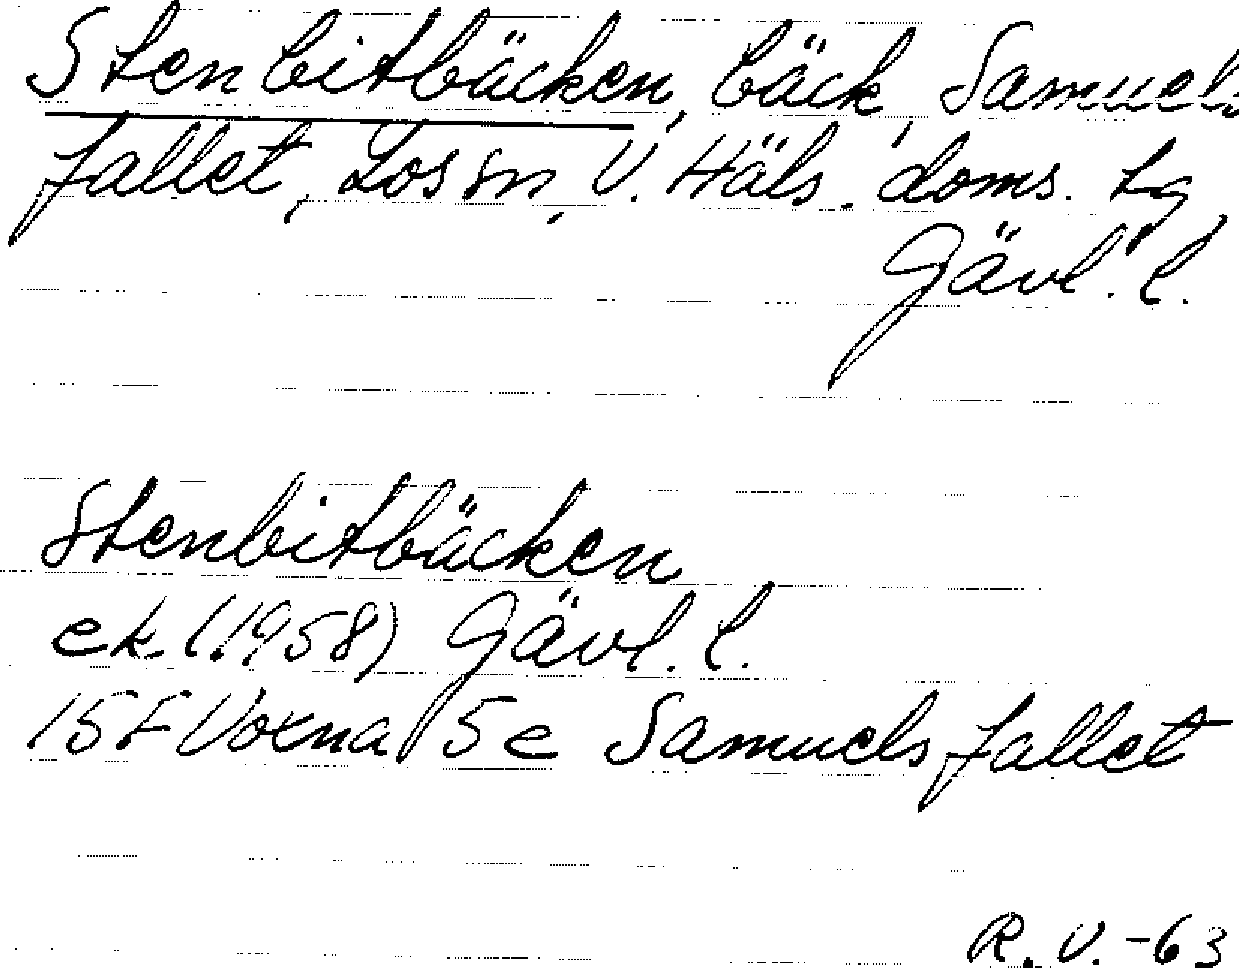 Stenbitbäcken, bäck, Samuels
fallet, Los sn, V. Häls. doms. tg,
Gävl. l.
Stenbitbäcken
ek (1958) Gävl. l.
15F Voxna 5e Samuelsfallet
R. V. -63